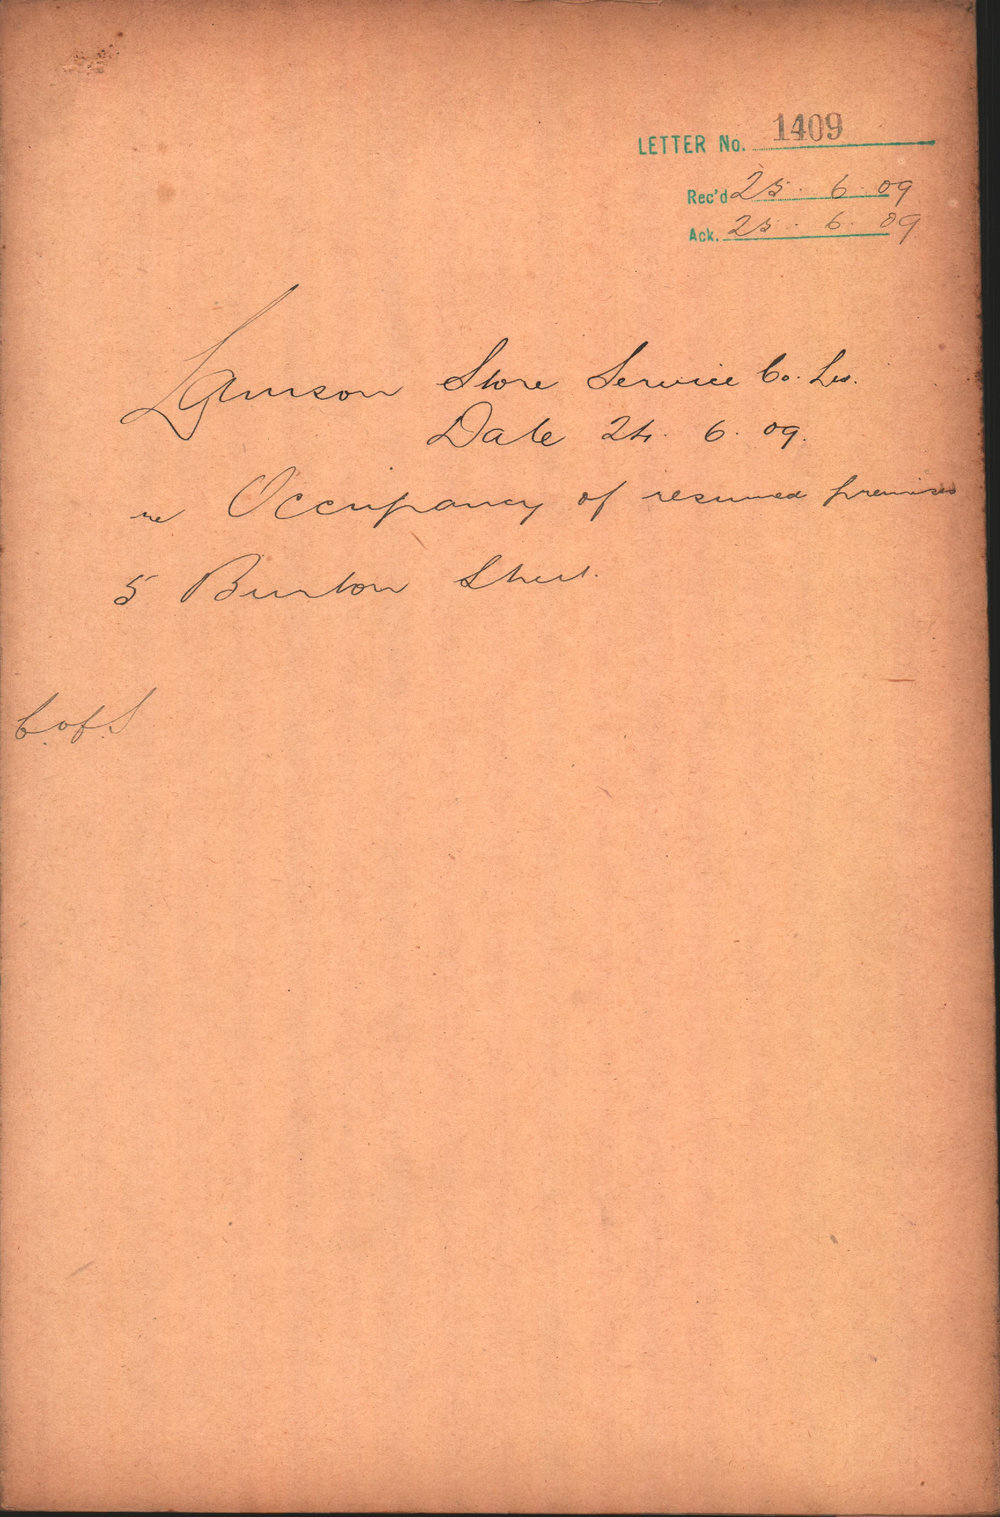 LETTER No. 1409
Rec'd 25. 6. 09
Ack. 25. 6. 09
Lamson Store Service Co. Ld.
Date 24. 6. 09.
re Occupancy of resumed premises
5 Burton Street.
C. of S